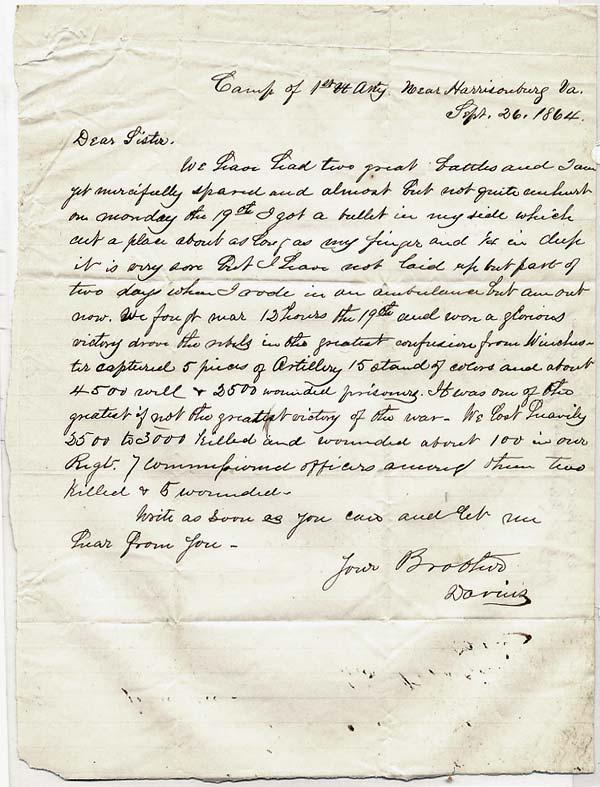 Camp of 1st H Arty Near Harrisonburg Va.
Sept. 26. 1864.
Dear Sister.
We have had two great battles and I am
yet mercifully spared and almost but not quite unhurt
on monday the 19th I got a bullet in my side which
cut a place about as long as my finger and in deep
it is very sore But I have not laid up but part of
two days when I rode in an ambulance but am out
now. We fought near 12 hours the 19th and won a glorious
victory drove the rebels in the greatest confusion from Winches-
ter captured 5 pieces of Artillery 15 stand of colors and about
4500 well & 2500 wounded prisoners. It was one of the
greatest if not the greatest victory of the war - We lost heavily
2500 to 3000 killed and wounded about 100 in our
Regt. 7 commissioned officers among them two
killed & 5 wounded -
Write as soon as you can and let me
hear from you -
Your Brother
Darius